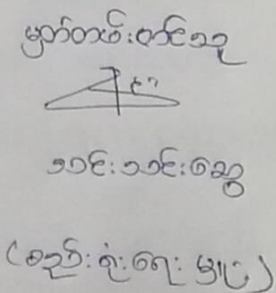 မှတ်တမ်းတင်သူ
သင်းသင်းဆွေ
(စည်းရုံးရေးမှူး)